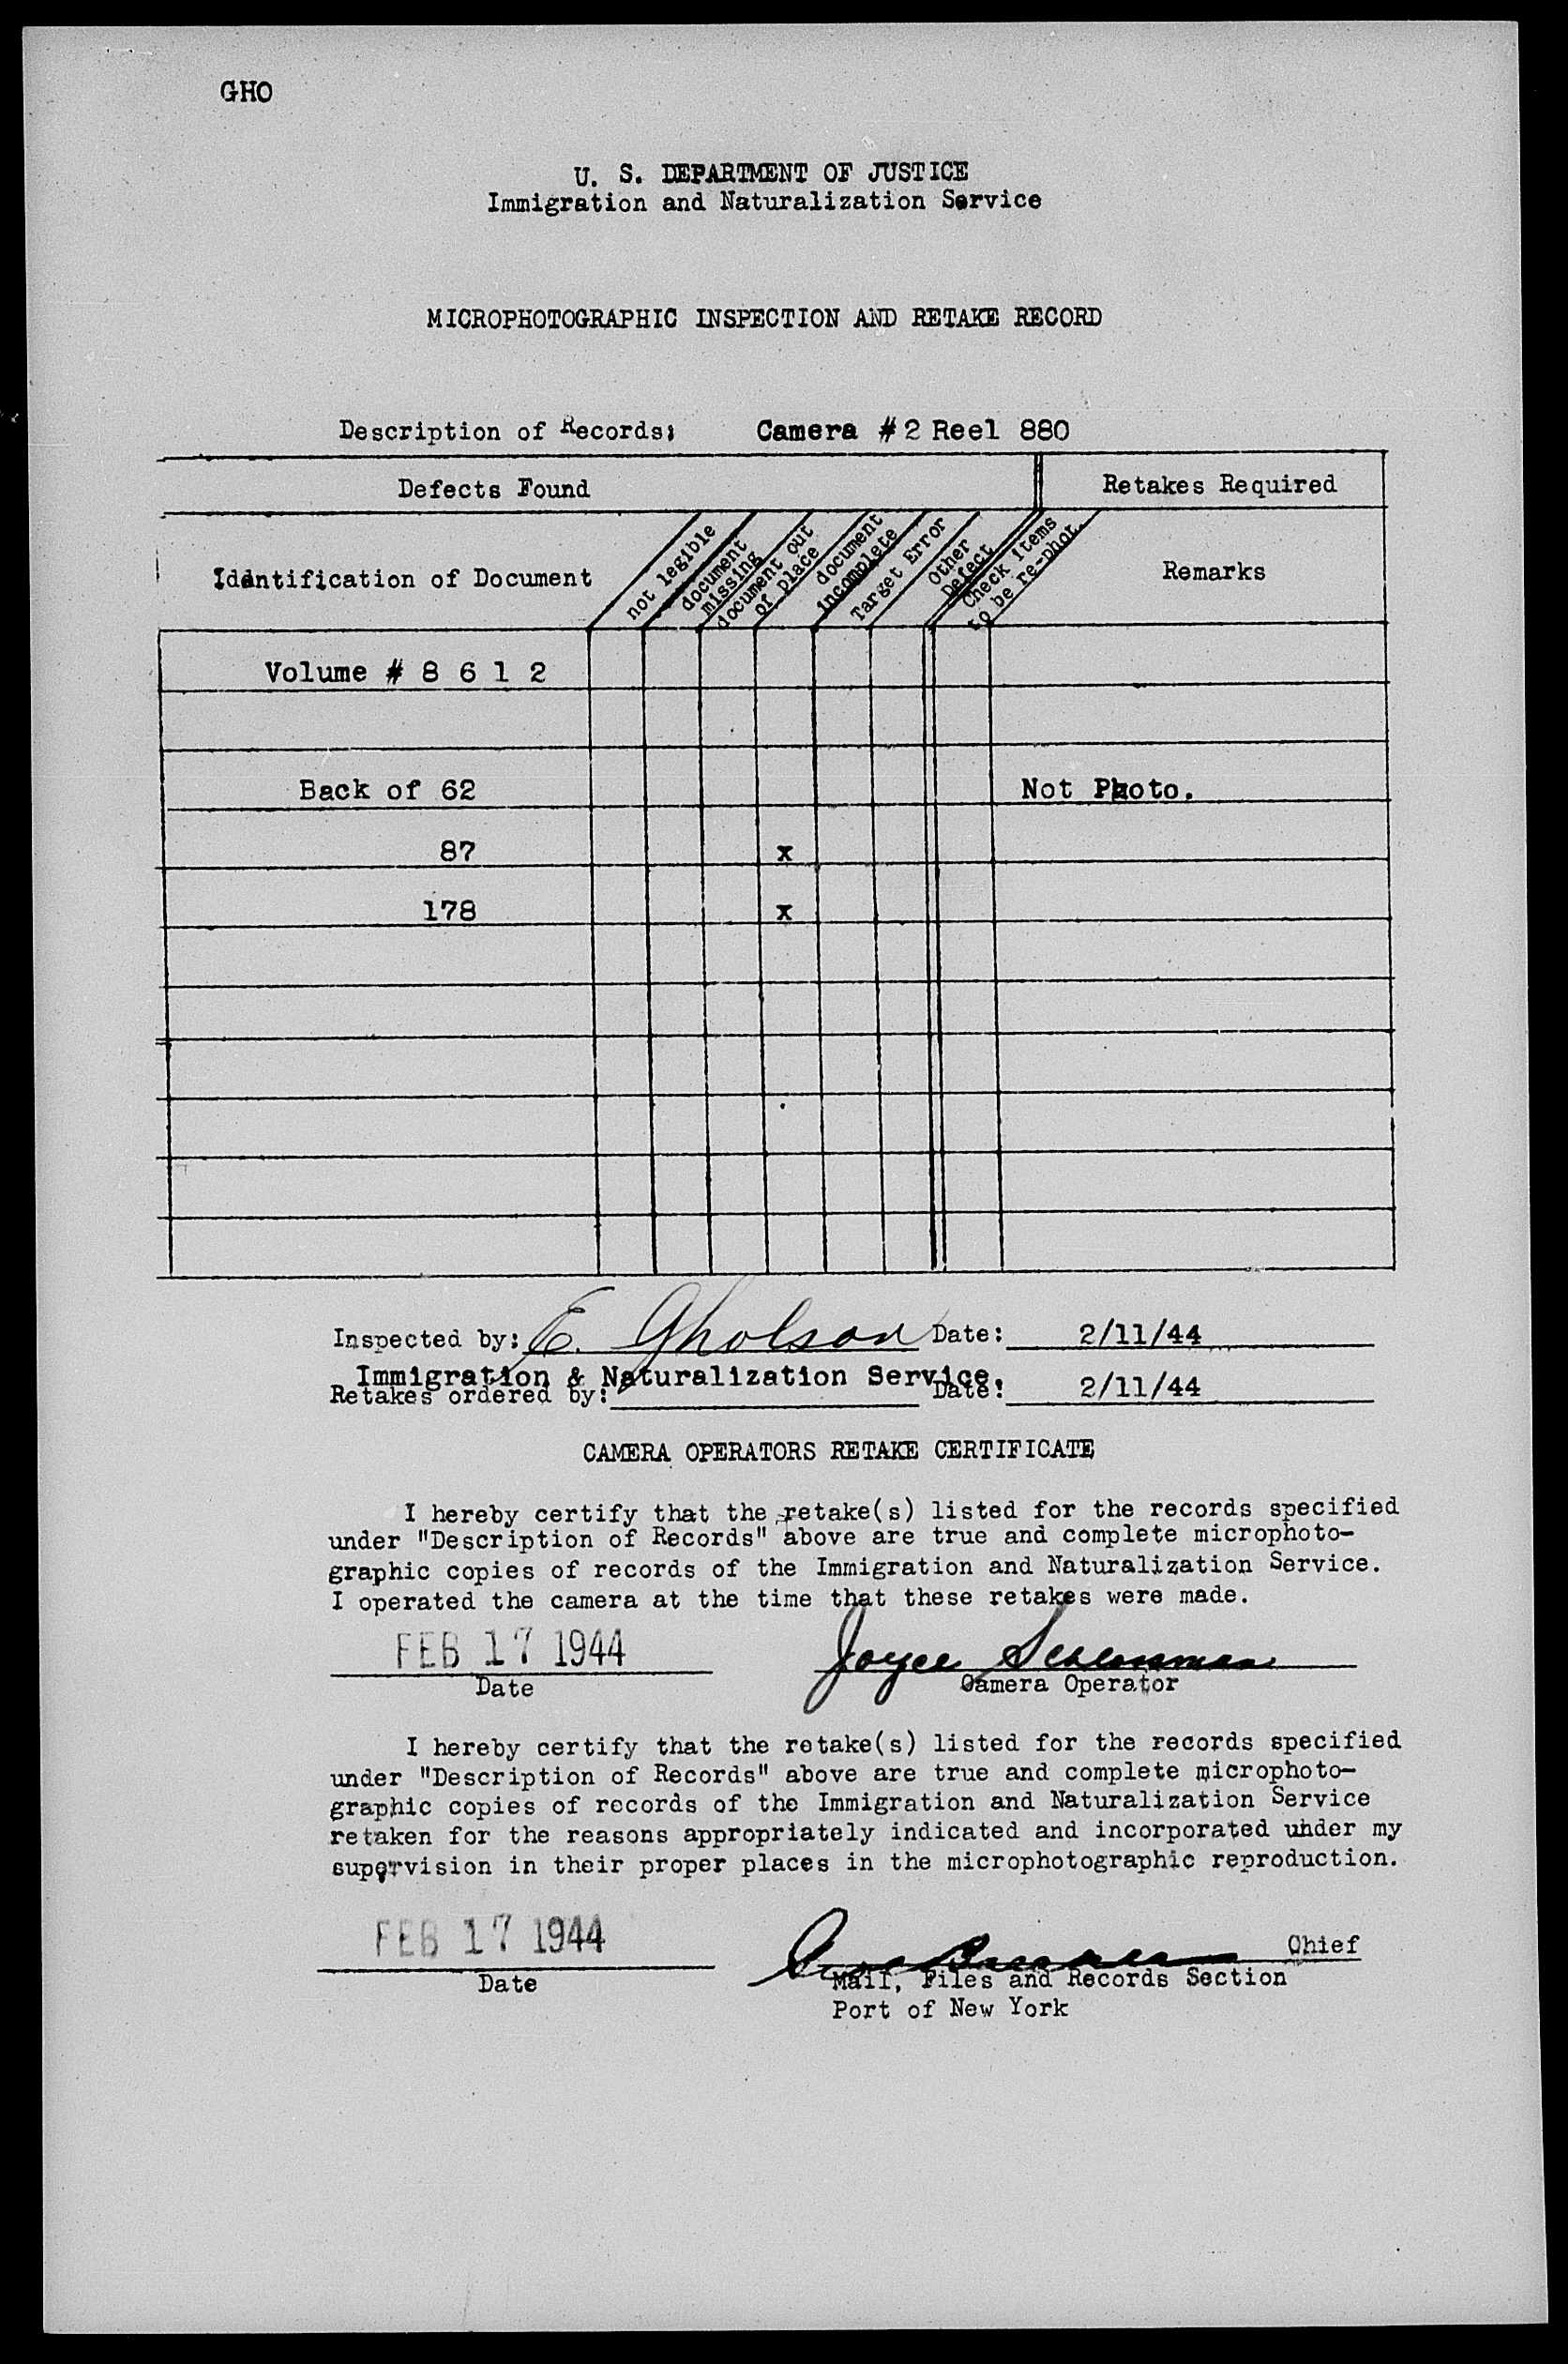 GHO
U. S. DEPARTMENT OF JUSTICE
Immigration and Naturalization Service
MICROPHOTOGRAPHIC INSPECTION AND RETAKE RECORD
Description of Records; Camera #2 Reel 880
Defects Found Retakes Required
Identification of Document
not legible
document
missing
document out
of place
document
incomplete
Target Error
Other
Defect
Check items
to be re-phot.
Remarks
Volume # 8 6 1 2
Back of 62 Not Photo.
87 x
178 x
Inspected by: E. Gholson Date: 2/11/44
Immigration & Naturalization Service.
Retakes ordered by: Date: 2/11/44
CAMERA OPERATORS RETAKE CERTIFICATE
I hereby certify that the retake(s) listed for the records specified
under "Description of Records" above are true and complete microphoto-
graphic copies of records of the Immigration and Naturalization Service.
I operated the camera at the time that these retakes were made.
FEB 17 1944 Joyce
Date Camera Operator
I hereby certify that the retake(s) listed for the records specified
under "Description of Records" above are true and complete microphoto-
graphic copies of records of the Immigration and Naturalization Service
retaken for the reasons appropriately indicated and incorporated under my
supervision in their proper places in the microphotographic reproduction.
FEB 17 1944 Chief
Date Mail, Files and Records Section
Port of New York